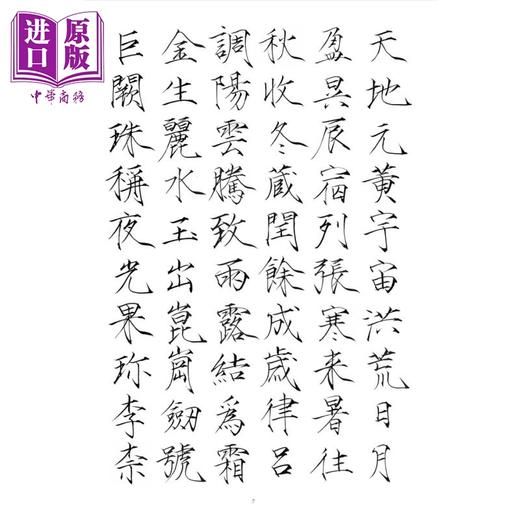 天地元黃宇宙洪荒日月
盈昃辰宿列張寒来暑往
秋收冬蔵閏餘成歲律呂
調陽雲騰致雨露結爲霜
金生麗水玉出崑崗劒號
巨闕珠稱夜光果珎李柰
原版
进口
中華商務